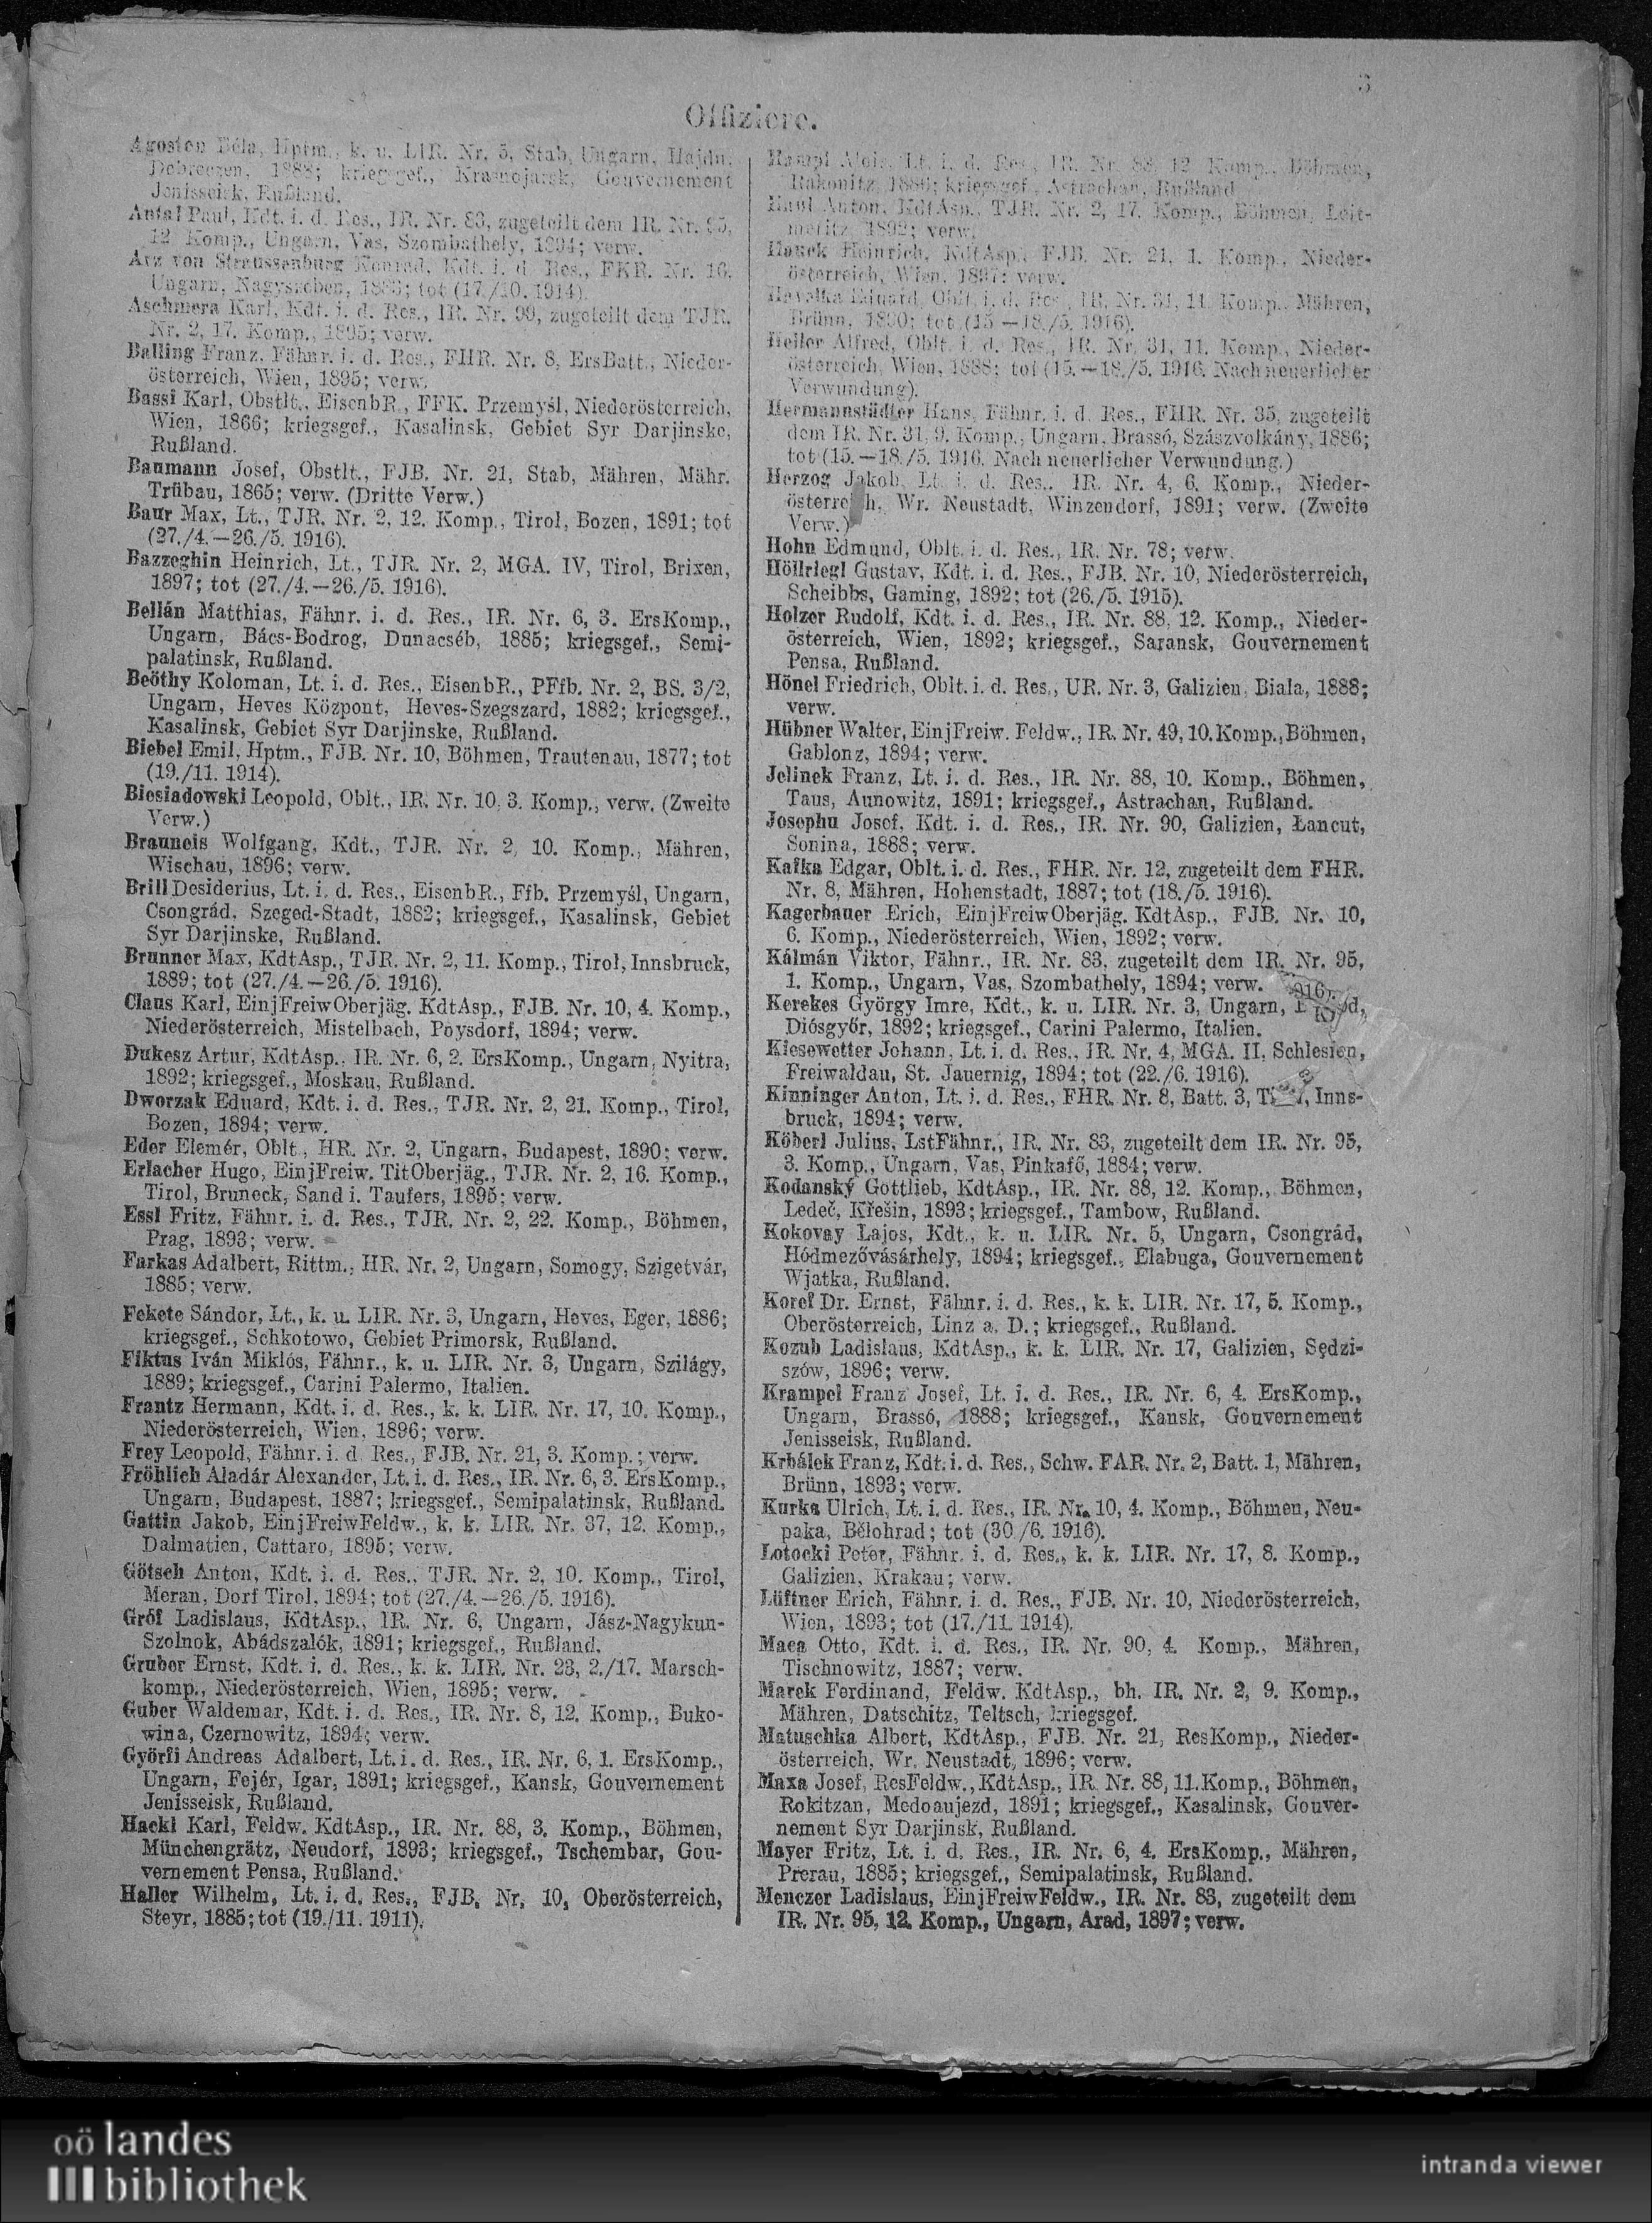 3
Offiziere.
Agoston Béla, Hptm., k. u. LIR. Nr. 5, Stab, Ungarn, Hajdu,
Debreczen, 1888; kriegsgef., Krasnojarsk, Gouvernement
Jenisseisk, Rußland.
Antal Paul, Kdt. i. d. Res., IR. Nr. 83, zugeteilt dem IR. Nr. 95,
12 Komp., Ungarn, Vas, Szombathely, 1894; verw.
Arz von Straussenburg Konrad, Kdt. i. d. Res., FKR. Nr. 16,
Ungarn, Nagyszeben, tot (17./10. 1914).
Aschmera Karl, Kdt. i. d. Res., IR. Nr. 99, zugeteilt dem TJR.
Nr. 2, 17. Komp., 1895; verw.
Balling Franz, Fähnr. i. d. Res., FHR. Nr. 8, ErsBatt., Nieder-
österreich, Wien, 1895; verw.
Bassi Karl, Obstlt., EisenbR., FFK. Przemyśl, Niederösterreich,
Wien, 1866; kriegsgef., Kasalinsk, Gebiet Syr Darjinske,
Rußland.
Baumann Josef, Obstlt., FJB. Nr. 21, Stab, Mähren, Mähr.
Trübau, 1865; verw. (Dritte Verw.)
Baur Max, Lt., TJR. Nr. 2, 12. Komp., Tirol, Bozen, 1891; tot
(27./4.—26./5. 1916).
Bazzeghin Heinrich, Lt., TJR. Nr. 2, MGA. IV, Tirol, Brixen,
1897; tot (27./4.—26./5. 1916).
Bellán Matthias, Fähnr. i. d. Res., IR. Nr. 6, 3. ErsKomp.,
Ungarn, Bács-Bodrog, Dunacséb, 1885; kriegsgef., Semi-
palatinsk, Rußland.
Beöthy Koloman, Lt. i. d. Res., EisenbR., PFfb. Nr. 2, BS. 3/2,
Ungarn, Heves Központ, Heves-Szegszard, 1882; kriegsgef.,
Kasalinsk, Gebiet Syr Darjinske, Rußland.
Biebel Emil, Hptm., FJB. Nr. 10, Böhmen, Trautenau, 1877; tot
(19./11. 1914).
Biesiadowski Leopold, Oblt., IR. Nr. 10, 3. Komp., verw. (Zweite
Verw.)
Brauneis Wolfgang, Kdt., TJR. Nr. 2, 10. Komp., Mähren,
Wischau, 1896; verw.
Brill Desiderius, Lt. i. d. Res., EisenbR., Ffb. Przemyśl, Ungarn,
Csongrád, Szeged-Stadt, 1882; kriegsgef., Kasalinsk, Gebiet
Syr Darjinske, Rußland.
Brunner Max, KdtAsp., TJR. Nr. 2, 11. Komp., Tirol, Innsbruck,
1889; tot (27./4.—26./5. 1916).
Claus Karl, EinjFreiwOberjäg. KdtAsp., FJB. Nr. 10, 4. Komp.,
Niederösterreich, Mistelbach, Poysdorf, 1894; verw.
Dukesz Artur, KdtAsp., IR. Nr. 6, 2. ErsKomp., Ungarn, Nyitra,
1892; kriegsgef., Moskau, Rußland.
Dworzak Eduard, Kdt. i. d. Res., TJR. Nr. 2, 21. Komp., Tirol,
Bozen, 1894; verw.
Eder Elemér, Oblt., HR. Nr. 2, Ungarn, Budapest, 1890; verw.
Erlacher Hugo, EinjFreiw. TitOberjäg., TJR. Nr. 2, 16. Komp.,
Tirol, Bruneck, Sand i. Taufers, 1895; verw.
Essl Fritz, Fähnr. i. d. Res., TJR. Nr. 2, 22. Komp., Böhmen,
Prag, 1893; verw.
Farkas Adalbert, Rittm., HR. Nr. 2, Ungarn, Somogy, Szigetvár,
1885; verw.
Fekete Sándor, Lt., k. u. LIR. Nr. 3, Ungarn, Heves, Eger, 1886;
kriegsgef., Schkotowo, Gebiet Primorsk, Rußland.
Fiktus Iván Miklós, Fähnr., k. u. LIR. Nr. 3, Ungarn, Szilágy,
1889; kriegsgef., Carini Palermo, Italien.
Frantz Hermann, Kdt. i. d. Res., k. k. LIR. Nr. 17, 10. Komp.,
Niederösterreich, Wien, 1896; verw.
Frey Leopold, Fähnr. i. d. Res., FJB. Nr. 21, 3. Komp.; verw.
Fröhlich Aladár Alexander, Lt. i. d. Res., IR. Nr. 6, 3. ErsKomp.,
Ungarn, Budapest, 1887; kriegsgef., Semipalatinsk, Rußland.
Gattin Jakob, EinjFreiwFeldw., k. k. LIR. Nr. 37, 12. Komp.,
Dalmatien, Cattaro, 1895; verw.
Götsch Anton, Kdt. i. d. Res., TJR. Nr. 2, 10. Komp., Tirol,
Meran, Dorf Tirol, 1894; tot (27./4.—26./5. 1916).
Gróf Ladislaus, KdtAsp., IR. Nr. 6, Ungarn, Jász-Nagykun-
Szolnok, Abádszalók, 1891; kriegsgef., Rußland.
Gruber Ernst, Kdt. i. d. Res., k. k. LIR. Nr. 23, 2./17. Marsch-
komp., Niederösterreich, Wien, 1895; verw.
Guber Waldemar, Kdt. i. d. Res., IR. Nr. 8, 12. Komp., Buko-
wina, Czernowitz, 1894; verw.
Györfi Andreas Adalbert, Lt. i. d. Res., IR. Nr. 6, 1. ErsKomp.,
Ungarn, Fejér, Igar, 1891; kriegsgef., Kansk, Gouvernement
Jenisseisk, Rußland.
Hackl Karl, Feldw. KdtAsp., IR. Nr. 88, 3. Komp., Böhmen,
Münchengrätz, Neudorf, 1893; kriegsgef., Tschembar, Gou-
vernement Pensa, Rußland.
Haller Wilhelm, Lt. i. d. Res., FJB. Nr. 10, Oberösterreich,
Steyr, 1885; tot (19./11. 1911).
Hampl Alois, Lt. i. d. Res., IR. Nr. 88, 12 Komp., Böhmen,
Rakonitz, 1886; kriegsgef., Astrachan, Rußland.
Anton, KdtAsp., TJR. Nr. 2, 17. Komp., Böhmen, Leit-
meritz, 1892; verw.
Hauck Heinrich, KdtAsp., FJB. Nr. 21, 1. Komp., Nieder-
österreich, Wien, 1897; verw.
Havalka Eduard, Oblt. i. d. Res., IR. Nr. 31, 11. Komp., Mähren,
Brünn, 1890; tot (15.—18./5. 1916).
Heller Alfred, Oblt. i. d. Res., IR. Nr. 31, 11. Komp., Nieder-
österreich, Wien, 1888; tot (15.—18./5. 1916. Nach neuerlicher
Verwundung).
Hermannstädter Hans, Fähnr. i. d. Res., FHR. Nr. 35, zugeteilt
dem IR. Nr. 31, 9. Komp., Ungarn, Brassó, Szászvolkány, 1886;
tot (15.—18./5. 1916. Nach neuerlicher Verwundung.)
Herzog Jakob, Lt. i. d. Res., IR. Nr. 4, 6. Komp., Nieder-
österreich, Wr. Neustadt, Winzendorf, 1891; verw. (Zweite
Verw.)
Hohn Edmund, Oblt. i. d. Res., IR. Nr. 78; verw.
Höllriegl Gustav, Kdt. i. d. Res., FJB. Nr. 10, Niederösterreich,
Scheibbs, Gaming, 1892; tot (26./5. 1915).
Holzer Rudolf, Kdt. i. d. Res., IR. Nr. 88, 12. Komp., Nieder-
österreich, Wien, 1892; kriegsgef., Saransk, Gouvernement
Pensa, Rußland.
Hönel Friedrich, Oblt. i. d. Res., UR. Nr. 3, Galizien, Biala, 1888;
verw.
Hübner Walter, EinjFreiw. Feldw., IR. Nr. 49, 10. Komp., Böhmen,
Gablonz, 1894; verw.
Jelinek Franz, Lt. i. d. Res., IR. Nr. 88, 10. Komp., Böhmen,
Taus, Aunowitz, 1891; kriegsgef., Astrachan, Rußland.
Josephu Josef, Kdt. i. d. Res., IR. Nr. 90, Galizien, Łancut,
Sonina, 1888; verw.
Kafka Edgar, Oblt. i. d. Res., FHR. Nr. 12, zugeteilt dem FHR.
Nr. 8, Mähren, Hohenstadt, 1887; tot (18./5. 1916).
Kagerbauer Erich, EinjFreiwOberjäg. KdtAsp., FJB. Nr. 10,
6. Komp., Niederösterreich, Wien, 1892; verw.
Kálmán Viktor, Fähnr., IR. Nr. 83, zugeteilt dem IR. Nr. 95,
1. Komp., Ungarn, Vas, Szombathely, 1894; verw.
Kerekes György Imre, Kdt., k. u. LIR. Nr. 3, Ungarn,
Diósgyőr, 1892; kriegsgef., Carini Palermo, Italien.
Kiesewetter Johann, Lt. i. d. Res., IR. Nr. 4, MGA. II, Schlesien,
Freiwaldau, St. Jauernig, 1894; tot (22./6. 1916).
Kinninger Anton, Lt. i. d. Res., FHR. Nr. 8, Batt. 3, Inns-
bruck, 1894; verw.
Köberl Julius, LstFähnr., IR. Nr. 83, zugeteilt dem IR. Nr. 95,
3. Komp., Ungarn, Vas, Pinkafő, 1884; verw.
Kodanský Gottlieb, KdtAsp., IR. Nr. 88, 12. Komp., Böhmen,
Ledeč, Křešin, 1893; kriegsgef., Tambow, Rußland.
Kokovay Lajos, Kdt., k. u. LIR. Nr. 5, Ungarn, Csongrád,
Hódmezővásárhely, 1894; kriegsgef., Elabuga, Gouvernement
Wjatka, Rußland.
Koref Dr. Ernst, Fähnr. i. d. Res., k. k. LIR. Nr. 17, 5. Komp.,
Oberösterreich, Linz a. D.; kriegsgef., Rußland.
Kozub Ladislaus, KdtAsp., k. k. LIR. Nr. 17, Galizien, Sędzi-
szów, 1896; verw.
Krampel Franz Josef, Lt. i. d. Res., IR. Nr. 6, 4. ErsKomp.,
Ungarn, Brassó, 1888; kriegsgef., Kansk, Gouvernement
Jenisseisk, Rußland.
Krbálek Franz, Kdt. i. d. Res., Schw. FAR. Nr. 2, Batt. 1, Mähren,
Brünn, 1893; verw.
Kurka Ulrich, Lt. i. d. Res., IR. Nr. 10, 4. Komp., Böhmen, Neu-
paka, Bělohrad; tot (30./6. 1916).
Łotocki Peter, Fähnr. i. d. Res., k. k. LIR. Nr. 17, 8. Komp.,
Galizien, Krakau; verw.
Lüftner Erich, Fähnr. i. d. Res., FJB. Nr. 10, Niederösterreich,
Wien, 1893; tot (17./11. 1914).
Maca Otto, Kdt. i. d. Res., IR. Nr. 90, 4. Komp., Mähren,
Tischnowitz, 1887; verw.
Marek Ferdinand, Feldw. KdtAsp., bh. IR. Nr. 2, 9. Komp.,
Mähren, Datschitz, Teltsch, kriegsgef.
Matuschka Albert, KdtAsp., FJB. Nr. 21, ResKomp., Nieder-
österreich, Wr. Neustadt, 1896; verw.
Maxa Josef, ResFeldw., KdtAsp., IR. Nr. 88, 11. Komp., Böhmen,
Rokitzan, Medoaujezd, 1891; kriegsgef., Kasalinsk, Gouver-
nement Syr Darjinsk, Rußland.
Mayer Fritz, Lt. i. d. Res., IR. Nr. 6, 4. ErsKomp., Mähren,
Prerau, 1885; kriegsgef., Semipalatinsk, Rußland.
Menczer Ladislaus, EinjFreiwFeldw., IR. Nr. 83, zugeteilt dem
IR. Nr. 95, 12. Komp., Ungarn, Arad, 1897; verw.
oö landes
bibliothek
intranda viewer